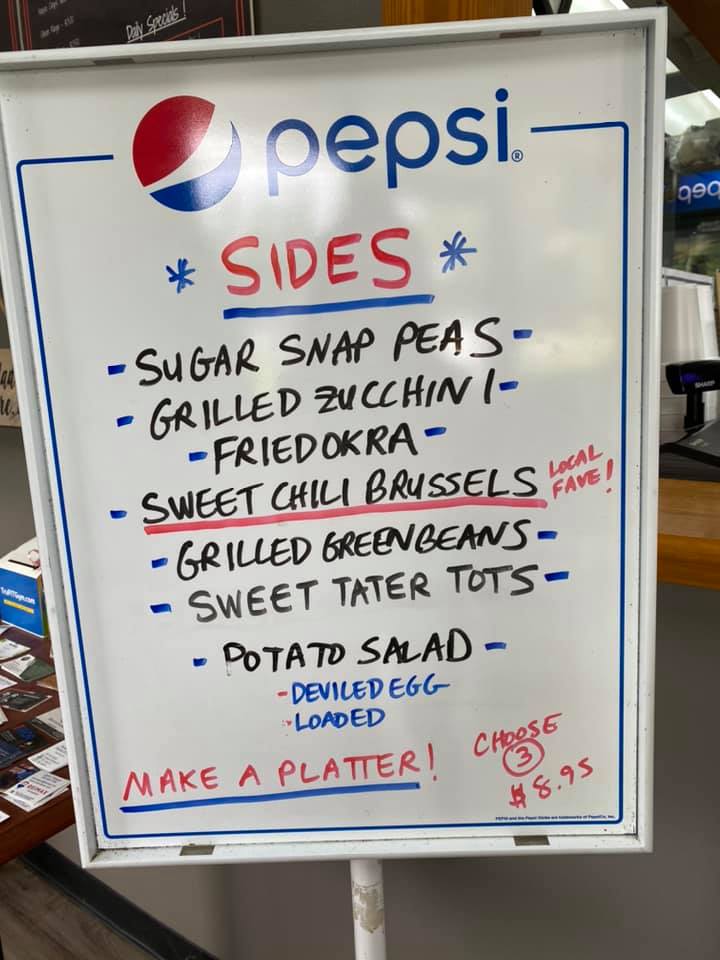 Daily Specials!
pepsi®
* SIDES *
- SUGAR SNAP PEAS -
- GRILLED ZUCCHINI -
- FRIED OKRA -
- SWEET CHILI BRUSSELS
LOCAL
FAVE!
- GRILLED GREEN BEANS -
- SWEET TATER TOTS -
- POTATO SALAD -
- DEVILED EGG
- LOADED
MAKE A PLATTER!
CHOOSE
3
$8.95
SHARP